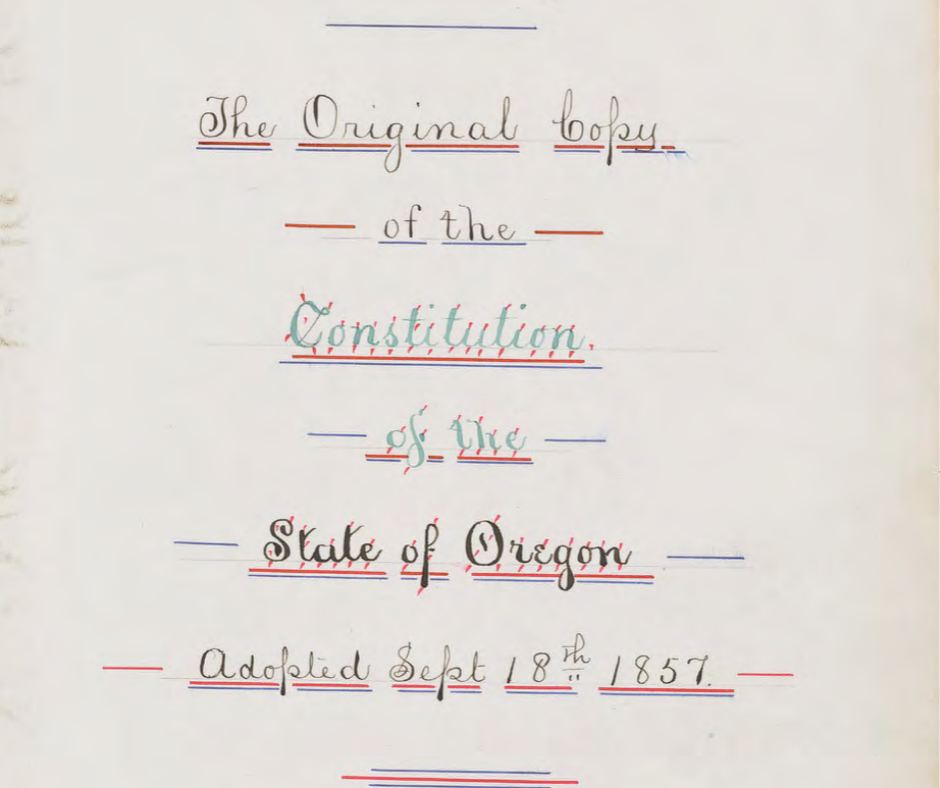 The Original Copy
of the
Constitution.
of the
State of Oregon
Adopted Sept 18th 1857.